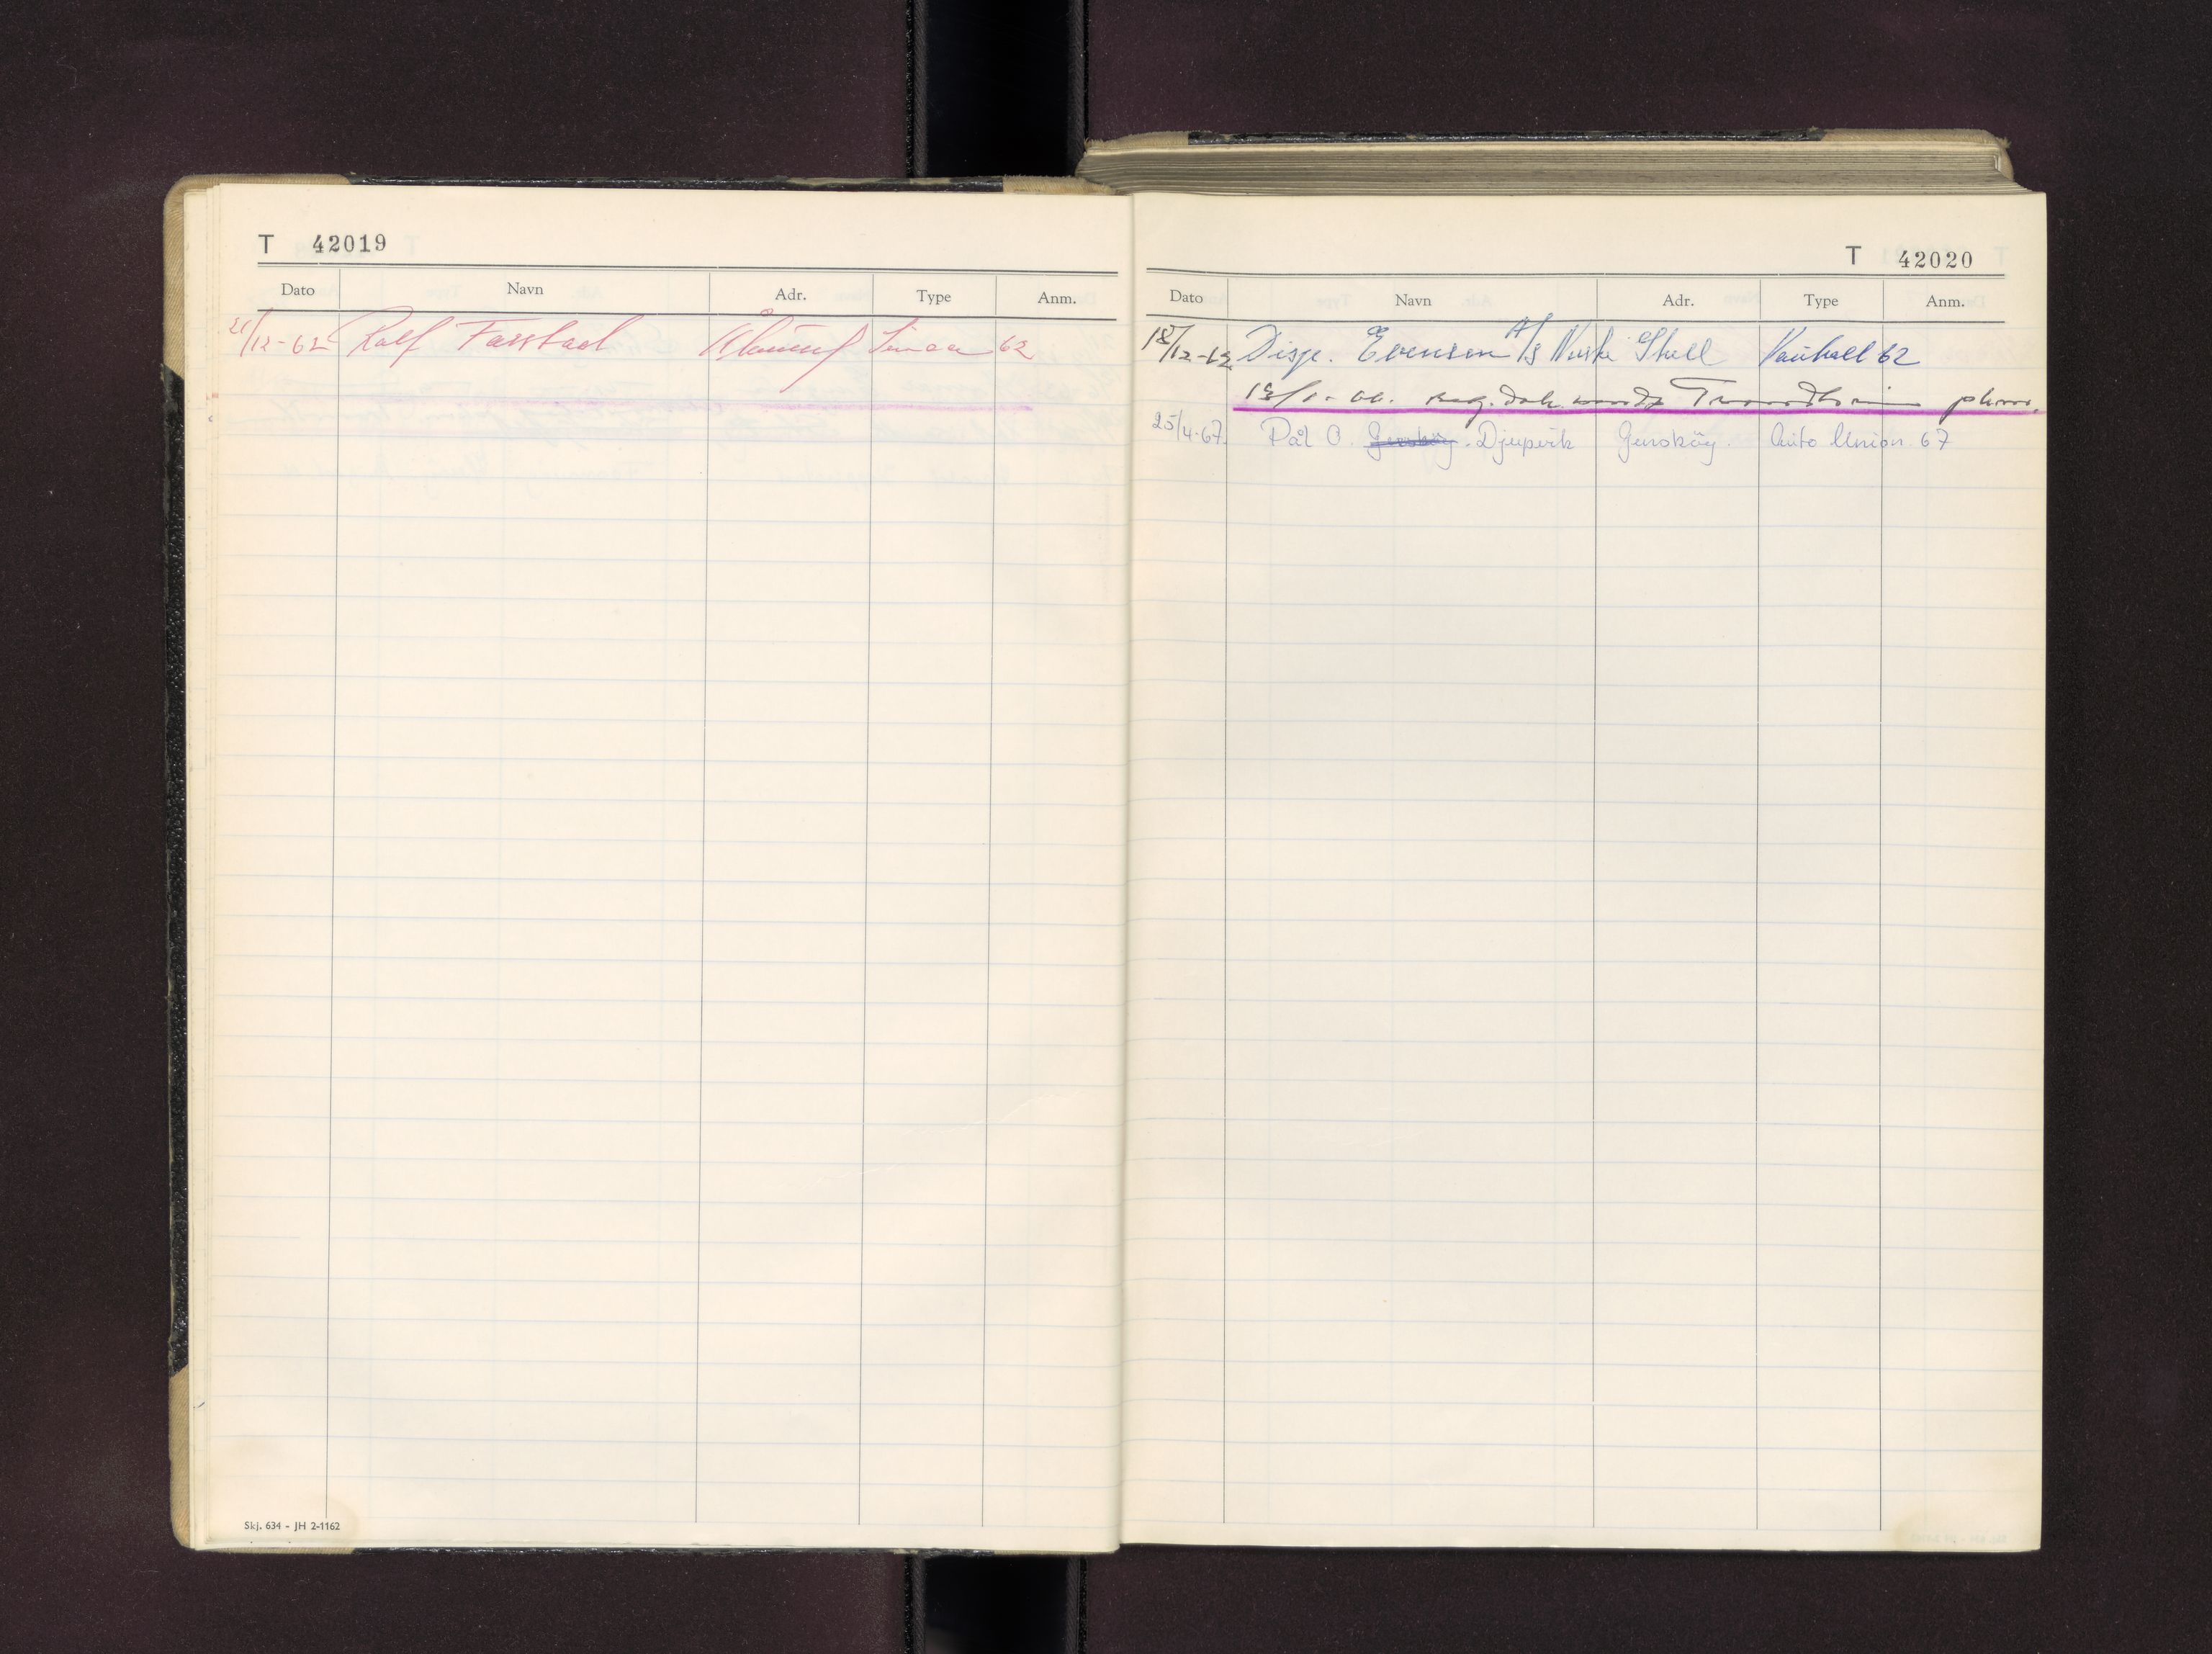 T 42019
Dato Navn Adr. Type Anm.
21/12-62 Rolf Farstad Ålesund Simca 62
Skj. 634 - JH 2-1162
T 42020
Dato Navn Adr. Type Anm.
18/12-62 Disp. Evensen A/S Norske Shell Vauxhall 62
18/1-66. Reg. dok. sendt Trondheim
25/4-67. Pål O. Djupvik Gurskøy. Auto Union 67